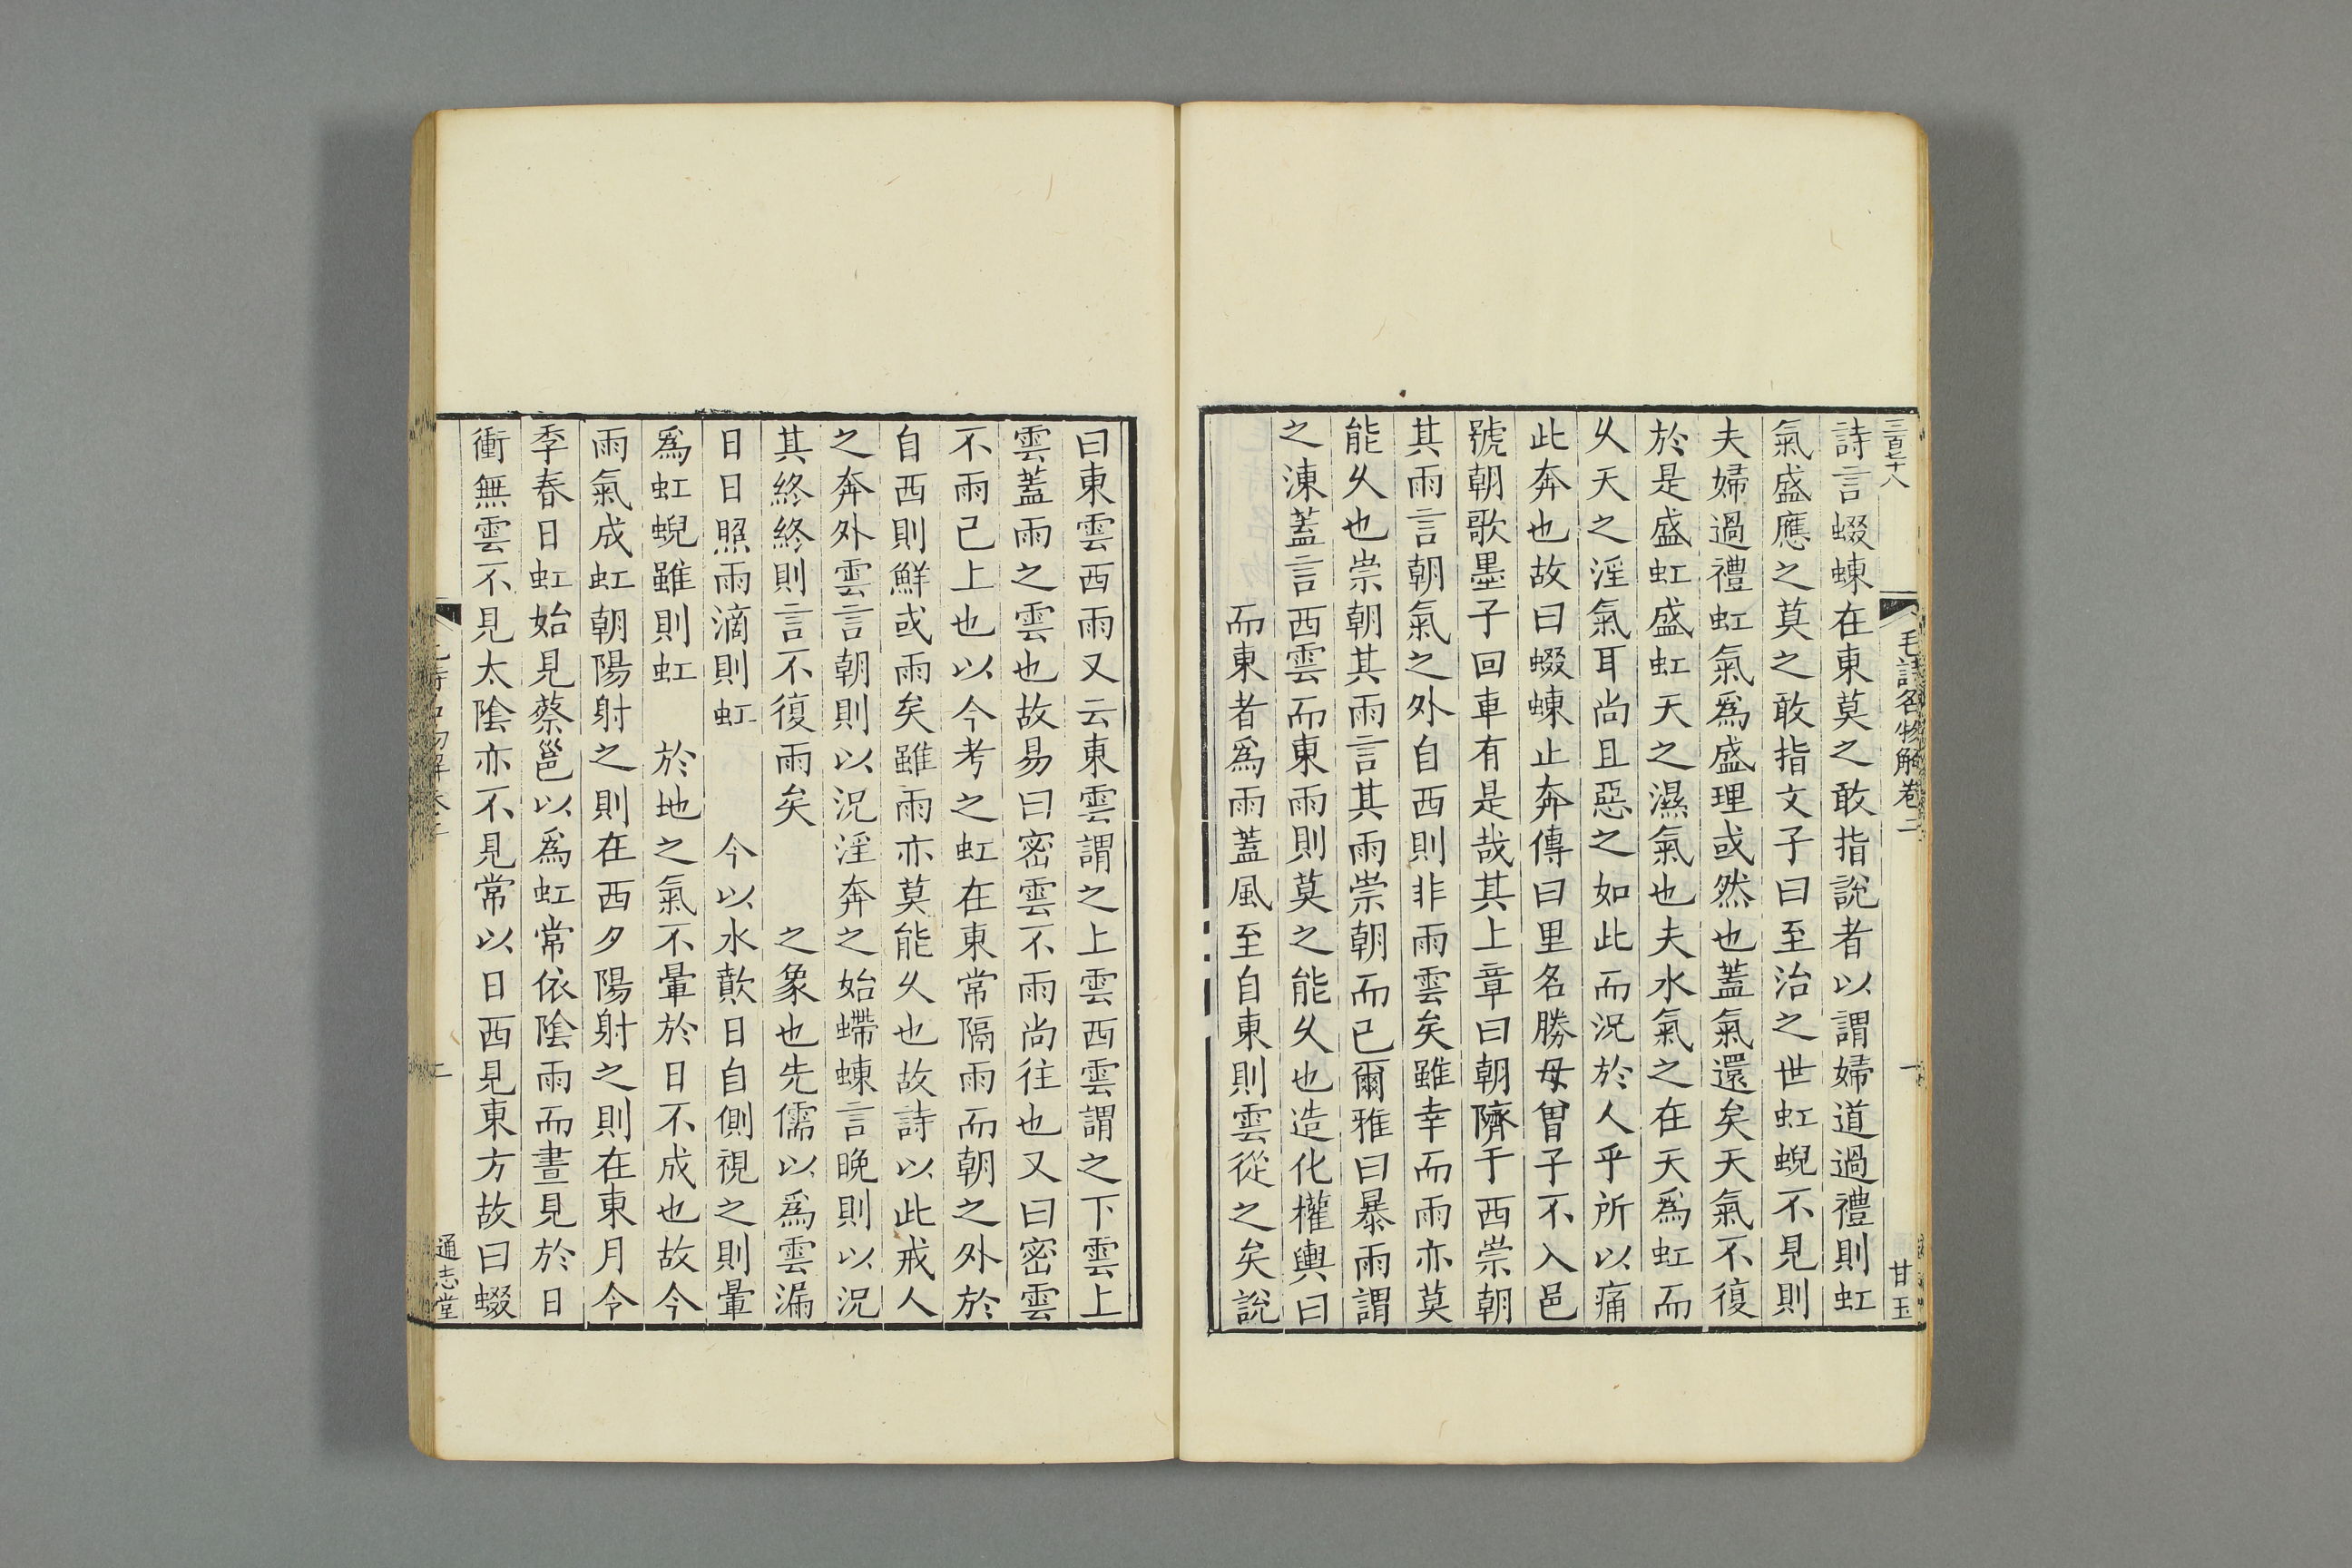 三百七十八
毛詩名物解卷二
一
甘玉
詩言蝃蝀在東莫之敢指說者以謂婦道過禮則虹
氣盛應之莫之敢指文子曰至治之世虹蜺不見則
夫婦過禮虹氣爲盛理或然也蓋氣還矣天氣不復
於是盛虹盛虹天之濕氣也夫水氣之在天爲虹而
乆天之淫氣耳尚且惡之如此而況於人乎所以痛
此奔也故曰蝃蝀止奔傳曰里名勝母曾子不入邑
號朝歌墨子回車有是哉其上章曰朝隮于西崇朝
其雨言朝氣之外自西則非雨雲矣雖幸而雨亦莫
能乆也崇朝其雨言其雨崇朝而已爾雅曰暴雨謂
之涷蓋言西雲而東雨則莫之能乆也造化權輿曰
而東者爲雨蓋風至自東則雲從之矣說
曰東雲西雨又云東雲謂之上雲西雲謂之下雲上
雲蓋雨之雲也故易曰密雲不雨尚往也又曰密雲
不雨已上也以今考之虹在東常隔雨而朝之外於
自西則鮮或雨矣雖雨亦莫能乆也故詩以此戒人
之奔外雲言朝則以況淫奔之始螮蝀言晚則以況
其終終則言不復雨矣　　之象也先儒以爲雲漏
日日照雨滴則虹　　今以水歕日自側視之則暈
爲虹蜺雖則虹　於地之氣不暈於日不成也故今
雨氣成虹朝陽射之則在西夕陽射之則在東月令
季春日虹始見蔡邕以爲虹常依陰雨而晝見於日
衝無雲不見太陰亦不見常以日西見東方故曰蝃
二
通志堂